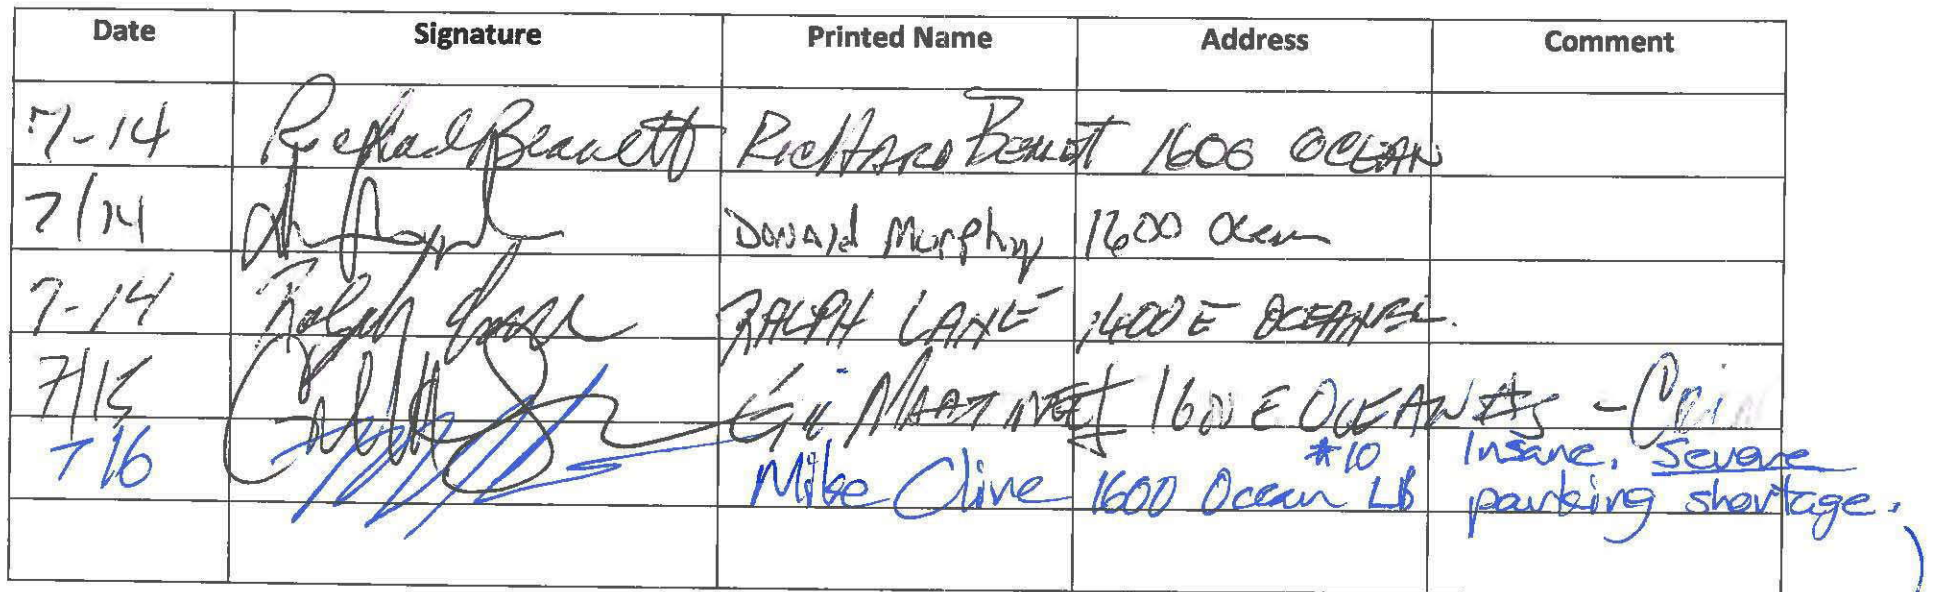 Date Signature Printed Name Address Comment
7-14 Richard Bennett RicHARD BENNETT 1600 OCEAN
7/14 DONAld Murphy 1600 Ocean
7-14 Ralph Lane RALPH LANE 1400 E OCEAN
7/15 Gil MARTINEZ 1600 E OCEAN #5 -
7 16 Mike Cline 1600 Ocean #10 LB Insane, Severe
parking shortage.